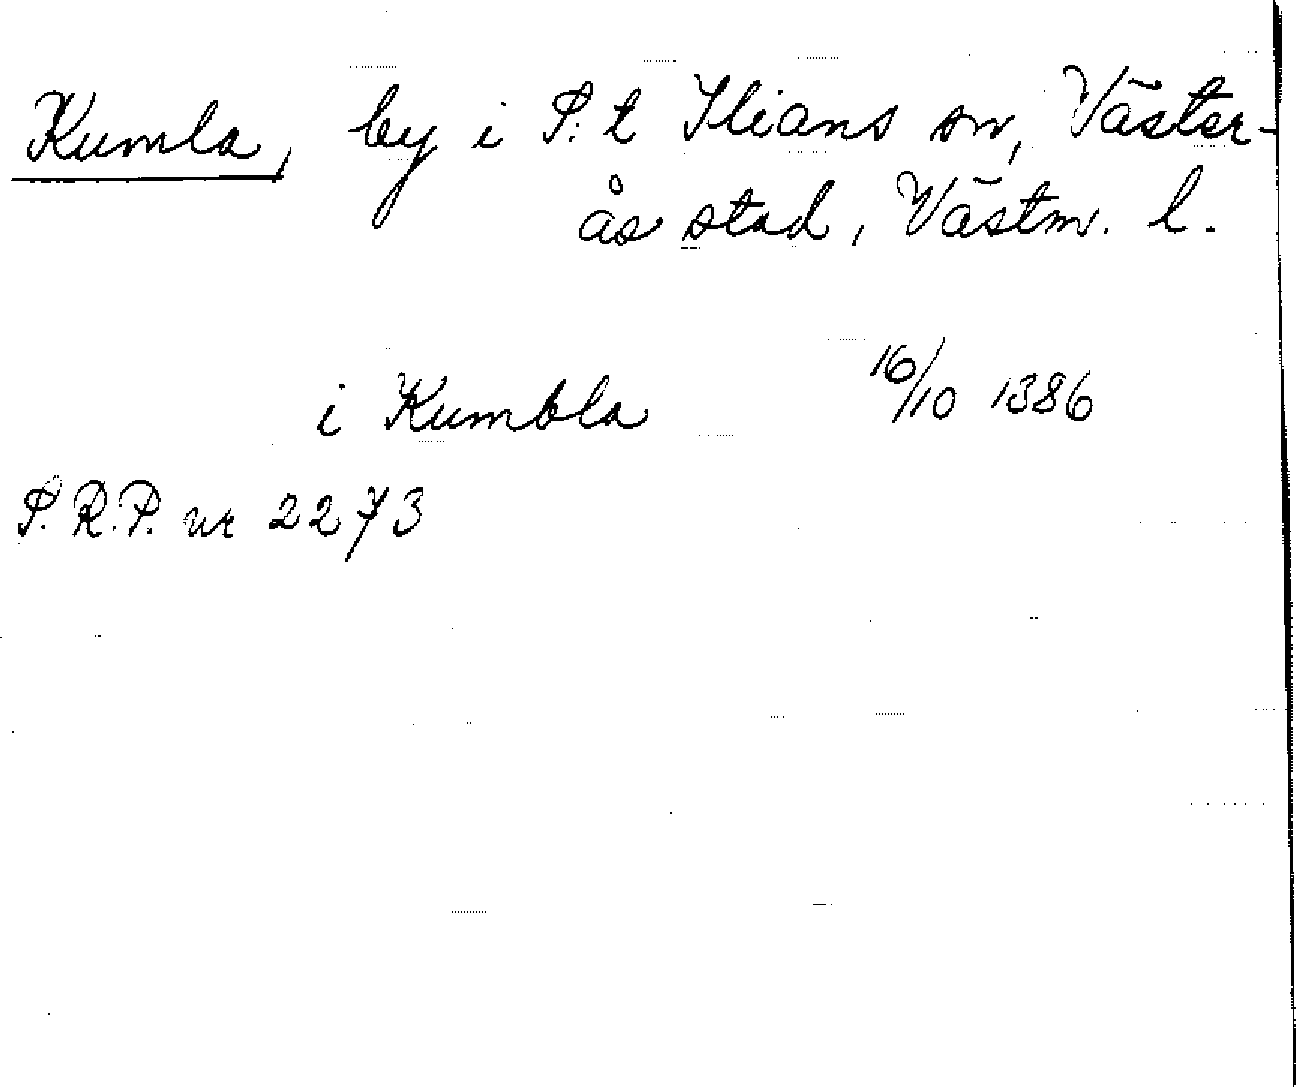 Kumla, by i S:t Ilians sn, Väster-
ås stad, Västm. l.
i Kumbla 16/10 1386
S.R.P. nr 2273